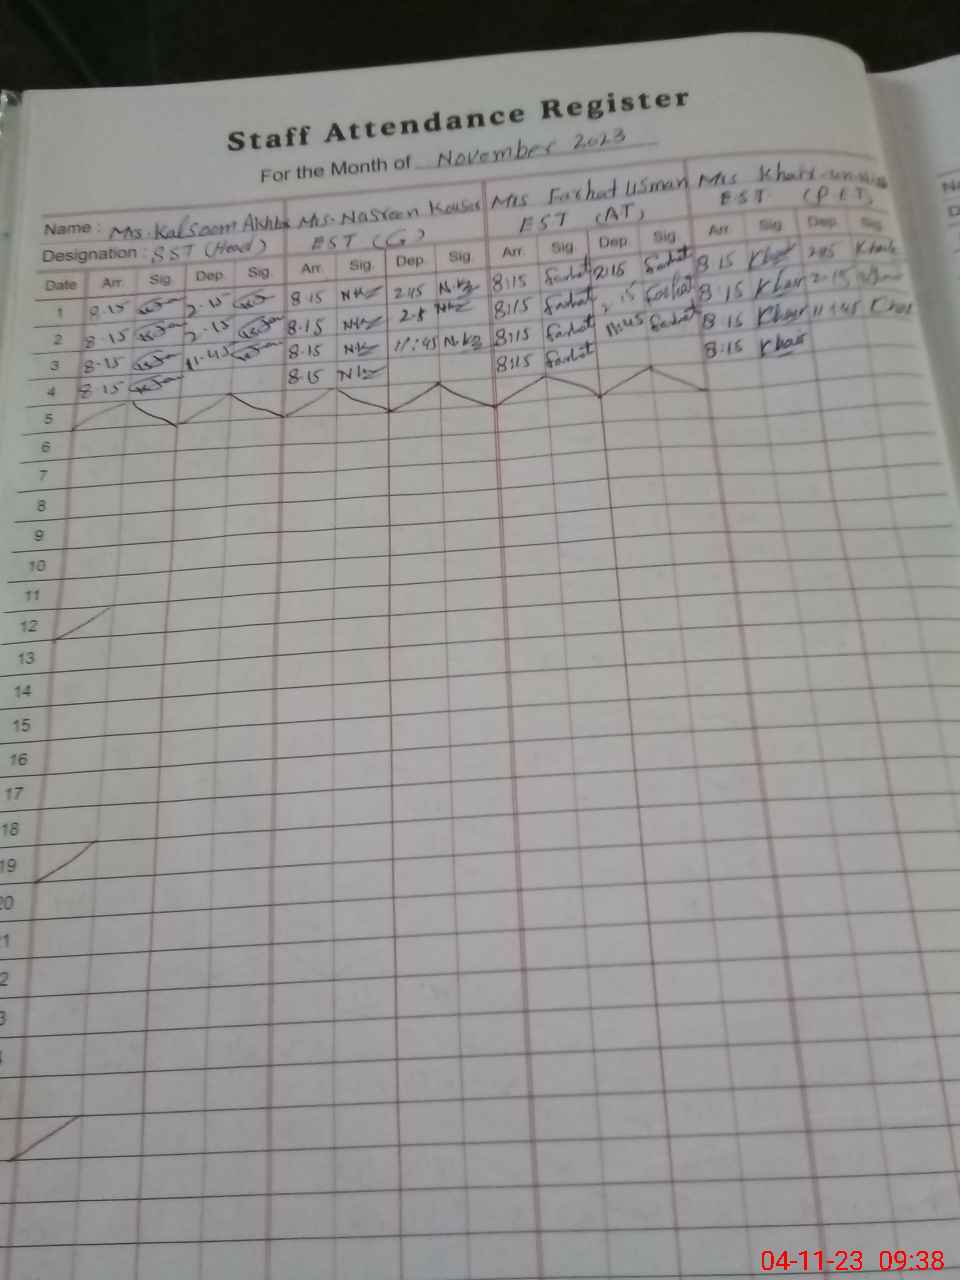 Staff Attendance Register
For the Month of November 2023
Name : Mrs. Kalsoom Akhtar Mrs. Nasreen Kausar Mrs Farhat Usman Mrs Khair-un-nisa
Designation : SST (Head) EST (G) EST (AT) EST (PET)
Date Arr. Sig. Dep. Sig. Arr. Sig. Dep. Sig. Arr. Sig. Dep. Sig. Arr. Sig. Dep. Sig.
1 8.15 2.15 8.15 2:15 8:15 Farhat 2:15 Farhat 8 15 Khair 2:15 Khair
2 8.15 2.15 8.15 8:15 Farhat 2 15 Farhat 8 15 Khair 2-15
3 8.15 11.45 8.15 11:45 8:15 Farhat 11:45 Farhat 8 15 Khair 11:45 Khair
4 8.15 8.15 8:15 Farhat 8:15 Khair
5
6
7
8
9
10
11
12
13
14
15
16
17
18
19
20
1
2
3
04-11-23 09:38